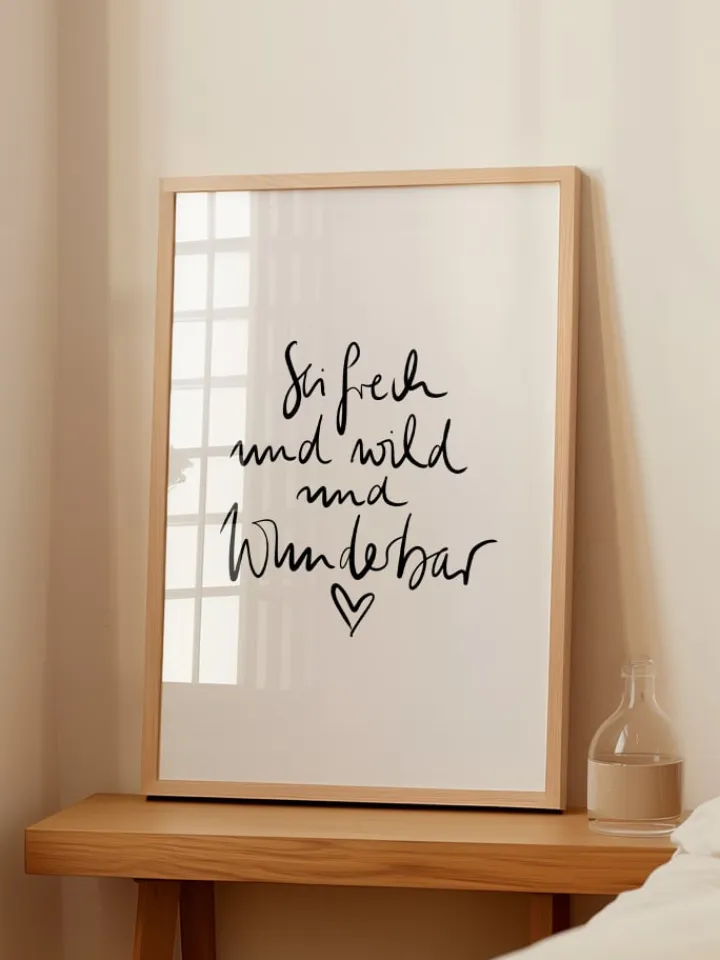 Sei frech
und wild
und
Wunderbar